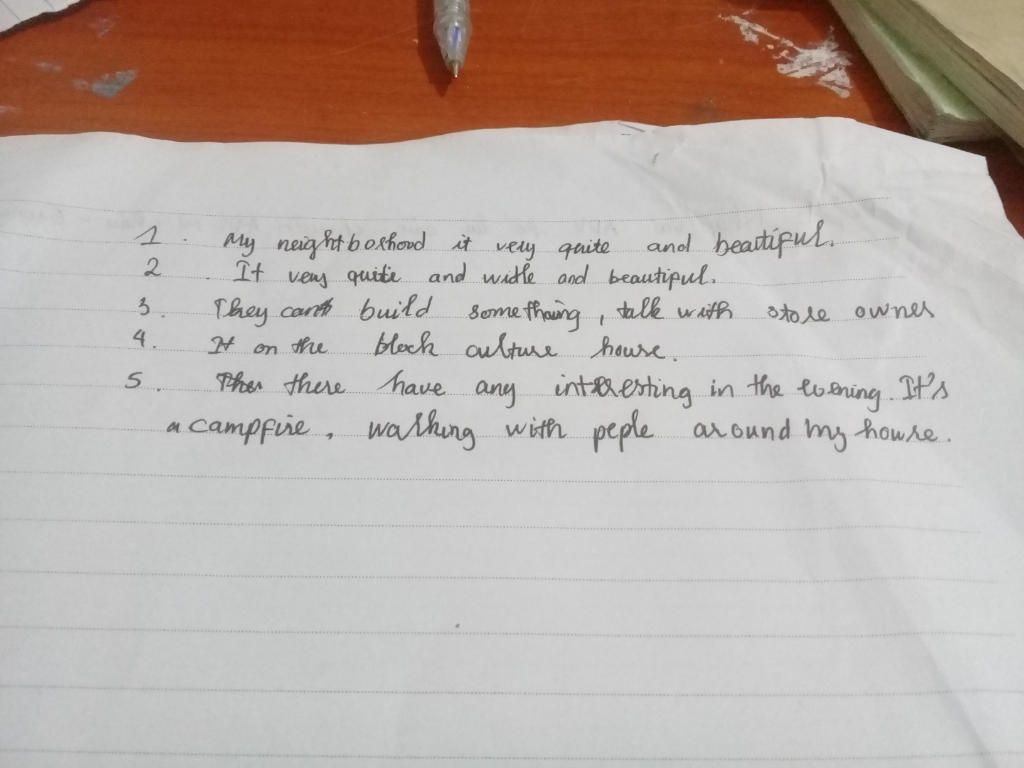 1. My neightborhood it very quite and beautiful.
2. It very quite and widle and beautiful.
3. They can build something, talk with store owner
4. It on the block culture house.
5. there have any interesting in the evening. It's
a campfire, walking with peple around my house.